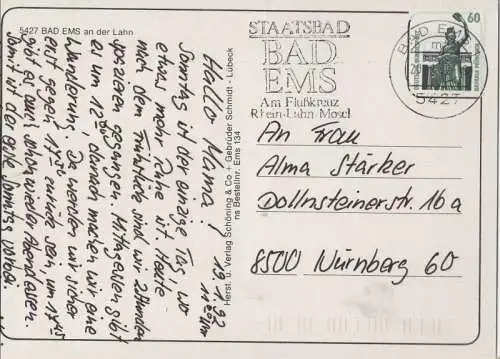 5427 BAD EMS an der Lahn
19.1.92
Hallo Mama!
Sonntag ist der einzige Tag, wo
etwas mehr Ruhe ist. Heute
nach dem Frühstück sind wir 2 Stunden
spazieren gegangen. Mittagessen gibt
es um 12⁰⁰ danach machen wir eine
Wanderung. Da werden wir sicher
erst gegen zurück sein, um 17⁴⁵
gibt es auch schon wieder Abendessen.
Somit ist der ganze Sonntag vorbei.
Herst. u. Verlag Schöning & Co + Gebrüder Schmidt - Lübeck
Bestellnr. Ems 134
STAATSBAD
BAD
EMS
Am Flußkreuz
Rhein-Lahn-Mosel
BAD EMS
5427
60
An Frau
Alma Stärker
Dollnsteinerstr. 16a
8500 Nürnberg 60